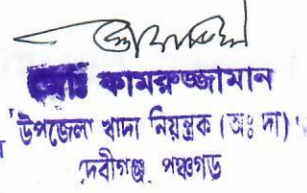 মোঃ কামরুজ্জামান
উপজেলা খাদ্য নিয়ন্ত্রক (অঃ দাঃ)
দেবীগঞ্জ, পঞ্চগড়